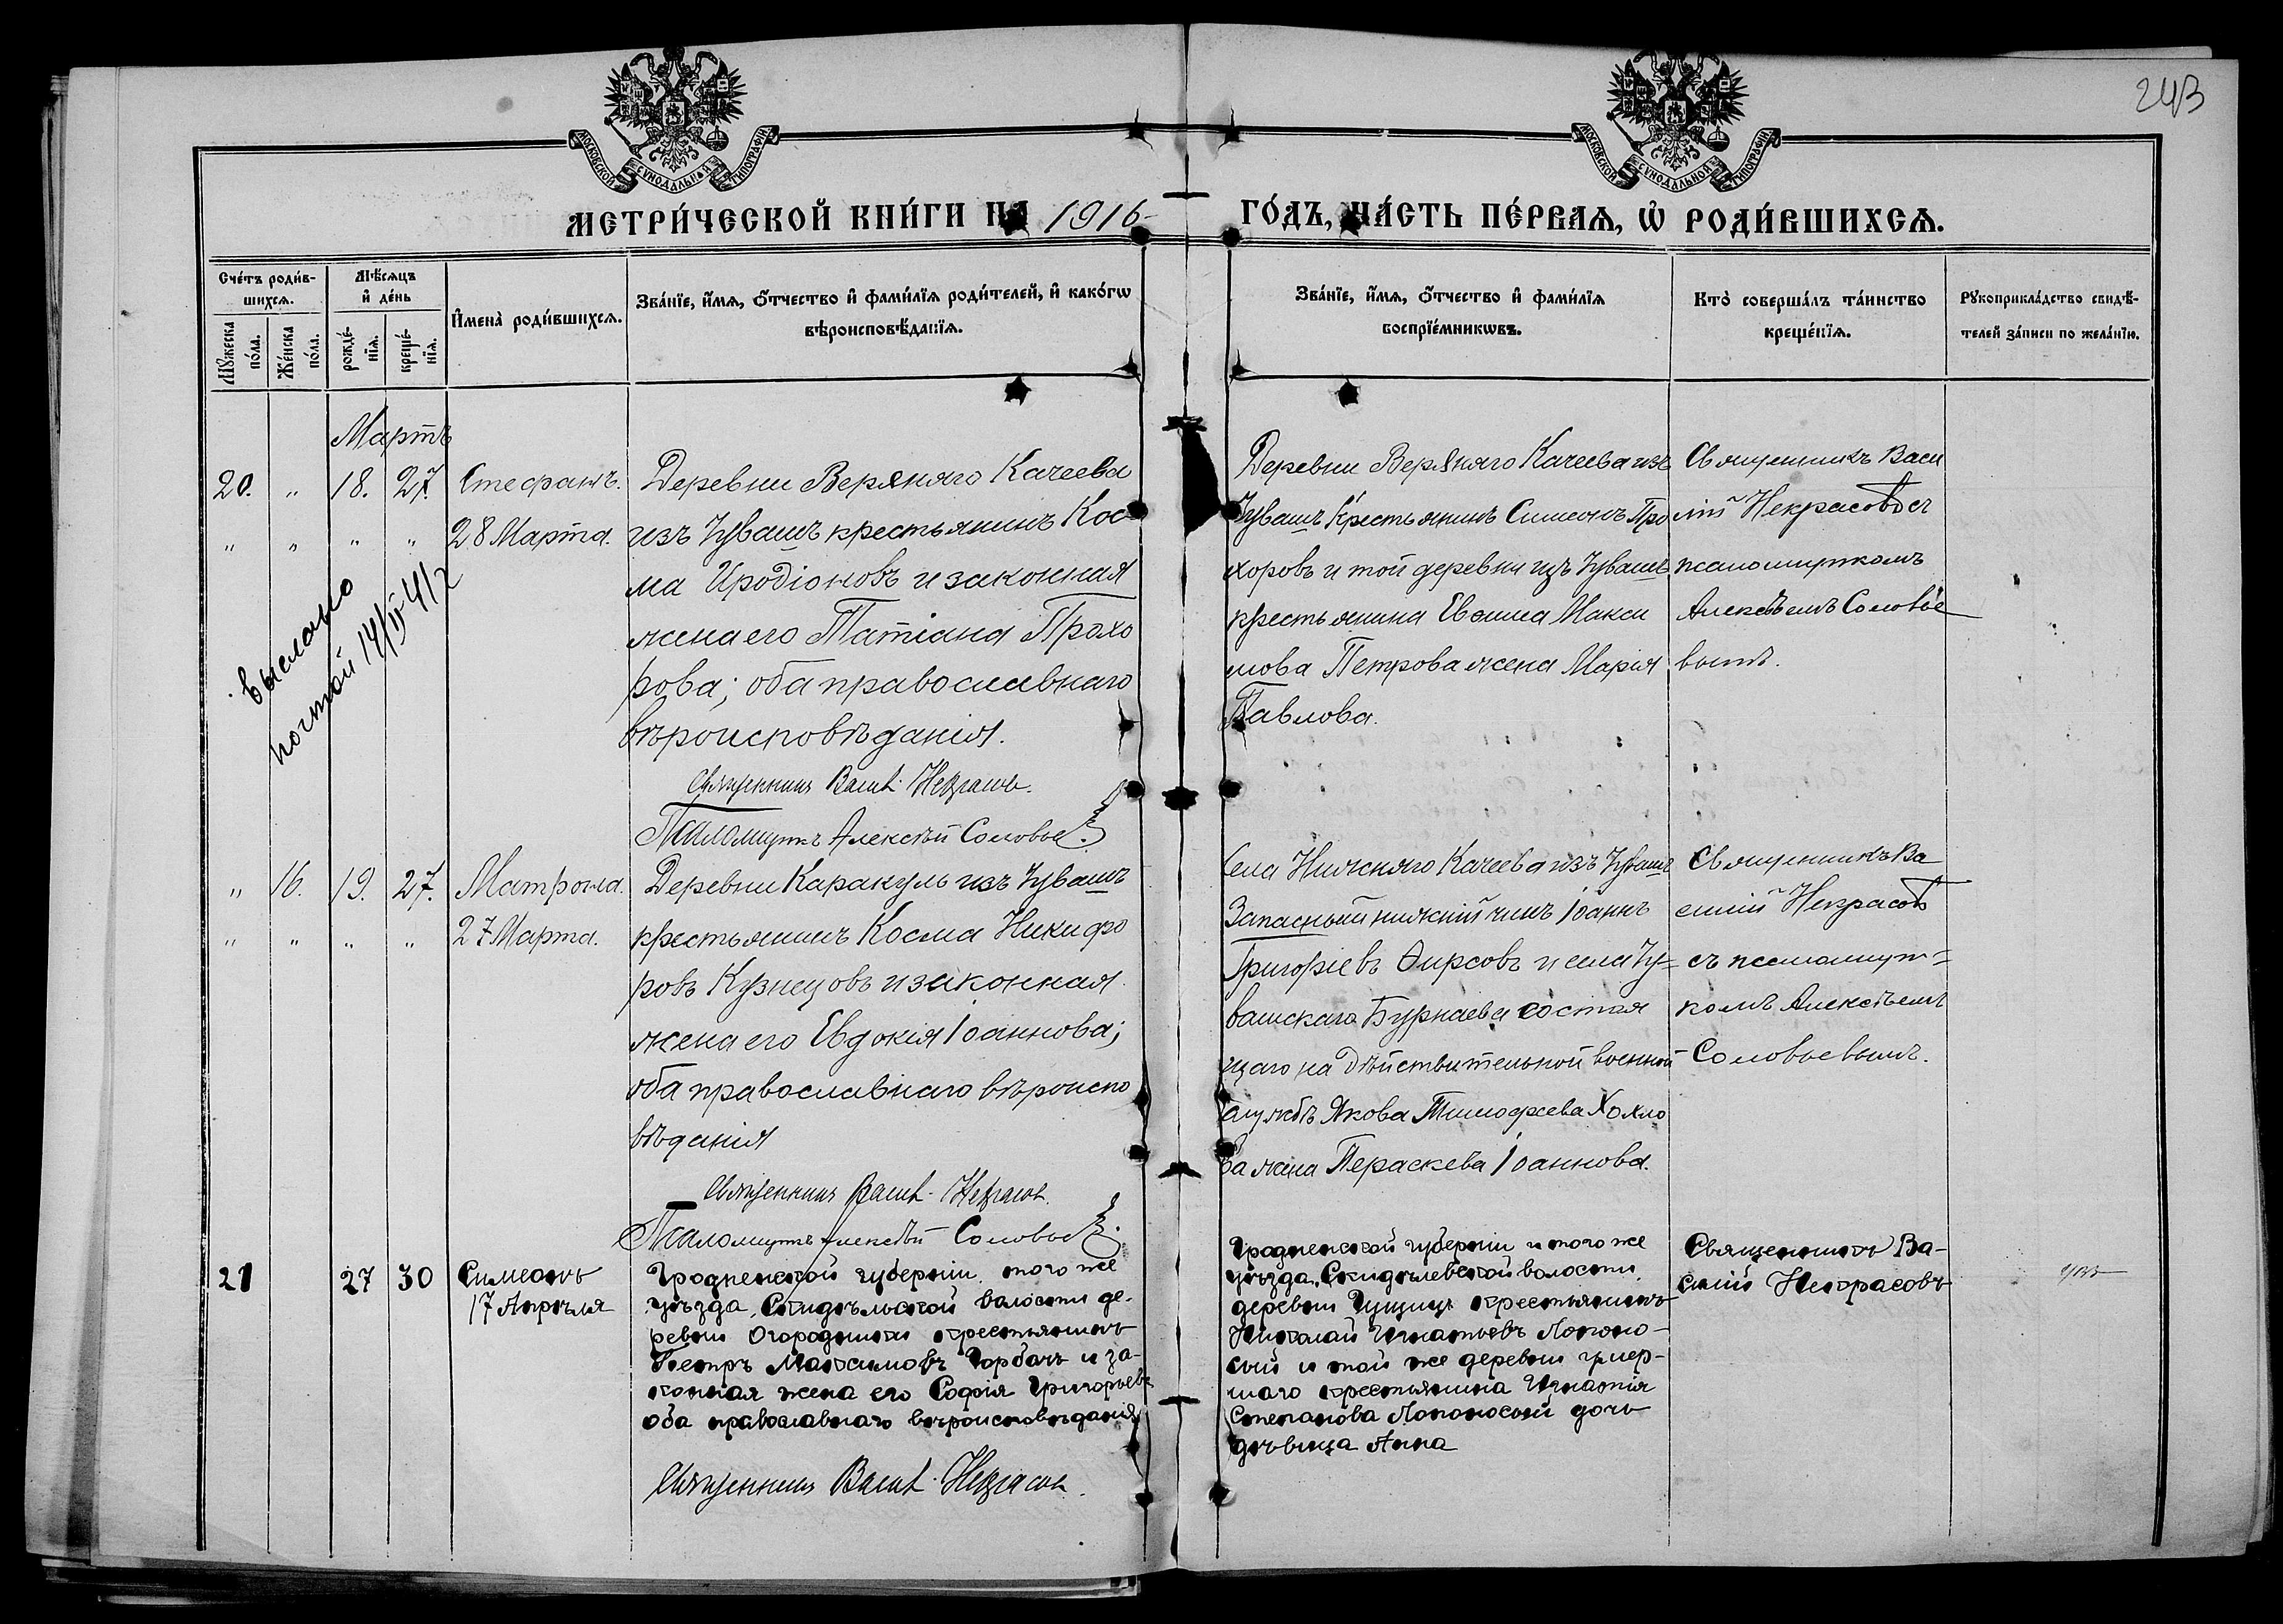 243
МОСКОВСКОЙ СѴНОДАЛЬНОЙ ТИПОГРАФІИ
МОСКОВСКОЙ СѴНОДАЛЬНОЙ ТИПОГРАФІИ
МЕТРИ́ЧЕСКОЙ КНИ́ГИ НА 1916 ГО́ДЪ, ЧА́СТЬ ПЕ́РВАѦ, Ѽ РОДИ́ВШИХСѦ.
Сче́тъ роди́в-
шихсѧ.
Мꙋ́жеска
по́ла.
Же́нска
по́ла.
Мѣ́сѧцъ
и҆ де́нь
рожде́-
нїѧ.
креще́-
нїѧ.
И҆мена̀ роди́вшихсѧ.
Зва́нїе, и҆́мѧ, ѻ҆́тчество и҆ фами́лїѧ роди́телей, и҆ како́гѡ
вѣроисповѣ́данїѧ.
Зва́нїе, и҆́мѧ, ѻ҆́тчество и҆ фами́лїѧ
воспрїе́мникѡвъ.
Кто̀ соверша́лъ та́инство
креще́нїѧ.
Рꙋкоприкла́дство свидѣ́-
телей за́писи по жела́нїю.
Мартъ
20. " 18. 27. Стефанъ.
" " " " 28 Марта.
выслано
почтой 14/II-41 г
Деревни Верхняго Качеева
изъ Чувашъ крестьянинъ Кос
ма Иродіоновъ и законная
жена его Татіана Прохо
рова; оба православнаго
вѣроисповѣданія.
Священникъ Васил. Некрасовъ.
Псаломщикъ Алексѣй Соловьевъ.
Деревни Верхняго Качеева изъ
Чувашъ Крестьянинъ Симеонъ Про
хоровъ и той деревни изъ Чувашъ
крестьянина Евѳима Макси
мова Петрова жена Марія
Павлова.
Священникъ Васи
лій Некрасовъ съ
псаломщикомъ
Алексѣемъ Соловье
вымъ.
" 16. 19. 27. Матрона.
" " " " 27 Марта.
Деревни Каракуль изъ Чувашъ
крестьянинъ Косма Никифо
ровъ Кузнецовъ и законная
жена его Евдокія Іоаннова;
оба православнаго вѣроиспо
вѣданія
Священникъ Васил. Некрасовъ.
Псаломщикъ Алексѣй Соловьевъ.
Села Нижняго Качеева изъ Чувашъ
Запасный нижній чинъ Іоаннъ
Григоріевъ Ѳирсовъ и села Чу=
вашскаго Бурнаева состоя
щаго на дѣйствительной военной
службѣ Якова Тимофеева Хохло
ва жена Параскева Іоаннова.
Священникъ Ва
силій Некрасовъ
съ псаломщи=
комъ Алексѣемъ
Соловьевымъ.
21 27 30 Симеонъ
17 Апрѣля
Гродненской губерніи того же
уѣзда, Скидѣльской волости де-
ревни Огородники крестьянинъ
Петръ Максимовъ Горбачъ и за-
конная жена его Софія Григорьева
оба православнаго вѣроисповѣданія
Священникъ Васил. Некрасовъ.
Гродненской губерніи и того же
уѣзда, Скидѣлевской волости
деревни Пущицы крестьянинъ
Николай Игнатьевъ Лопоно-
сый и той же деревни умер-
шаго крестьянина Игнатія
Степанова Лопоносый дочь
дѣвица Анна
Священникъ Ва-
силій Некрасовъ